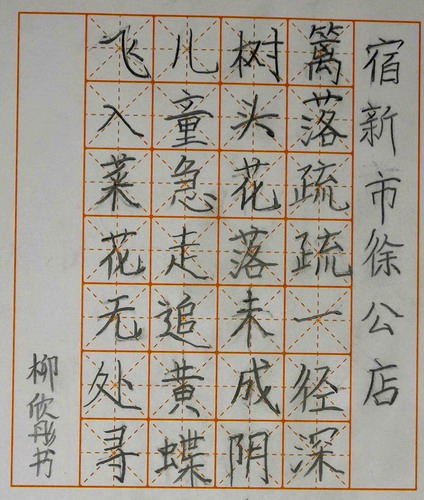 宿新市徐公店
篱落疏疏一径深
树头花落未成阴
儿童急走追黄蝶
飞入菜花无处寻
柳欣彤书